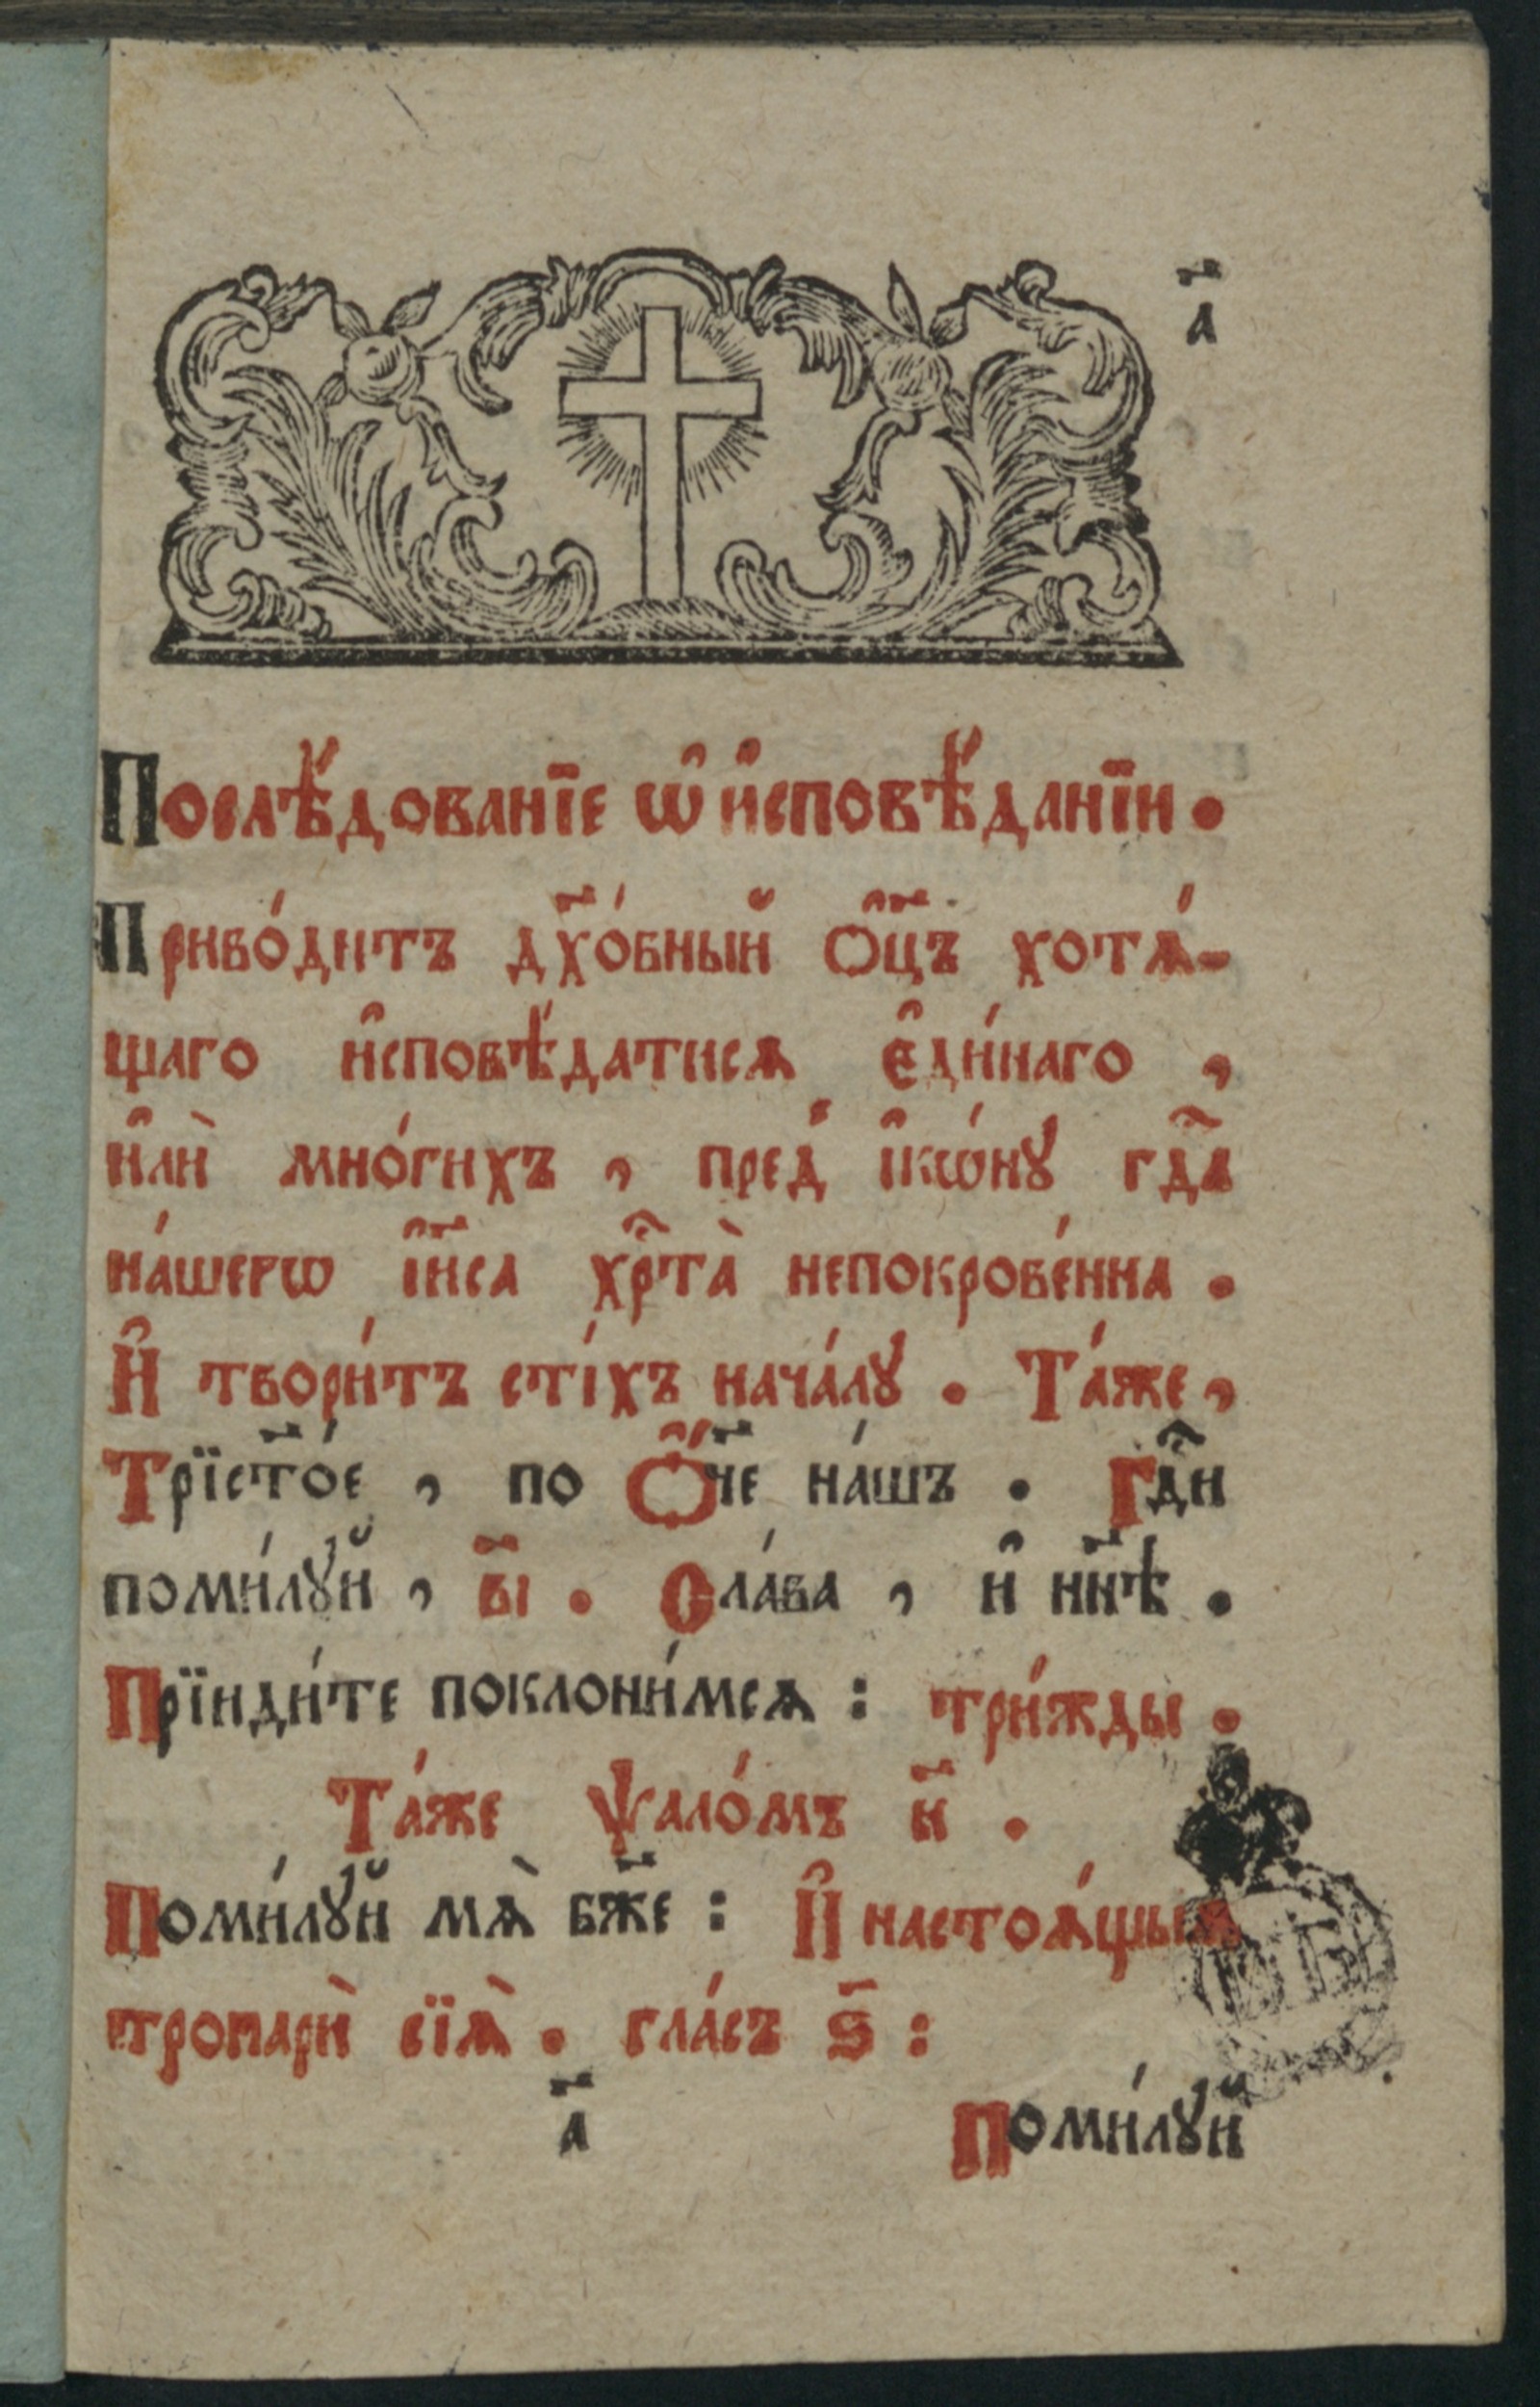 а҃
Послѣ́дованїе ѡ҆ и҆сповѣ́данїи.
Приво́дитъ дх҃о́вный ѻ҆ц҃ъ хотѧ́-
щаго и҆сповѣ́датисѧ є҆ди́наго ,
и҆лѝ мно́гихъ , пред̾ і҆кѡ́нꙋ гдⷭ҇а
на́шегѡ і҆и҃са хрⷭ҇та̀ непокрове́нна .
И҆ твори́тъ сті́хъ нача́лꙋ . Та́же ,
Трїст҃о́е , по Ѻ҆́ч҃е на́шъ . Гдⷭ҇и
поми́лꙋй , в҃і . Сла́ва , и҆ нн҃ѣ .
Прїиди́те поклони́мсѧ : три́жды .
Та́же ѱало́мъ н҃ .
Поми́лꙋй мѧ̀ бж҃е : И҆ настоѧ́щыѧ
тропарѝ сїѧ̀ . гла́съ ѕ҃ :
а҃ Поми́лꙋй